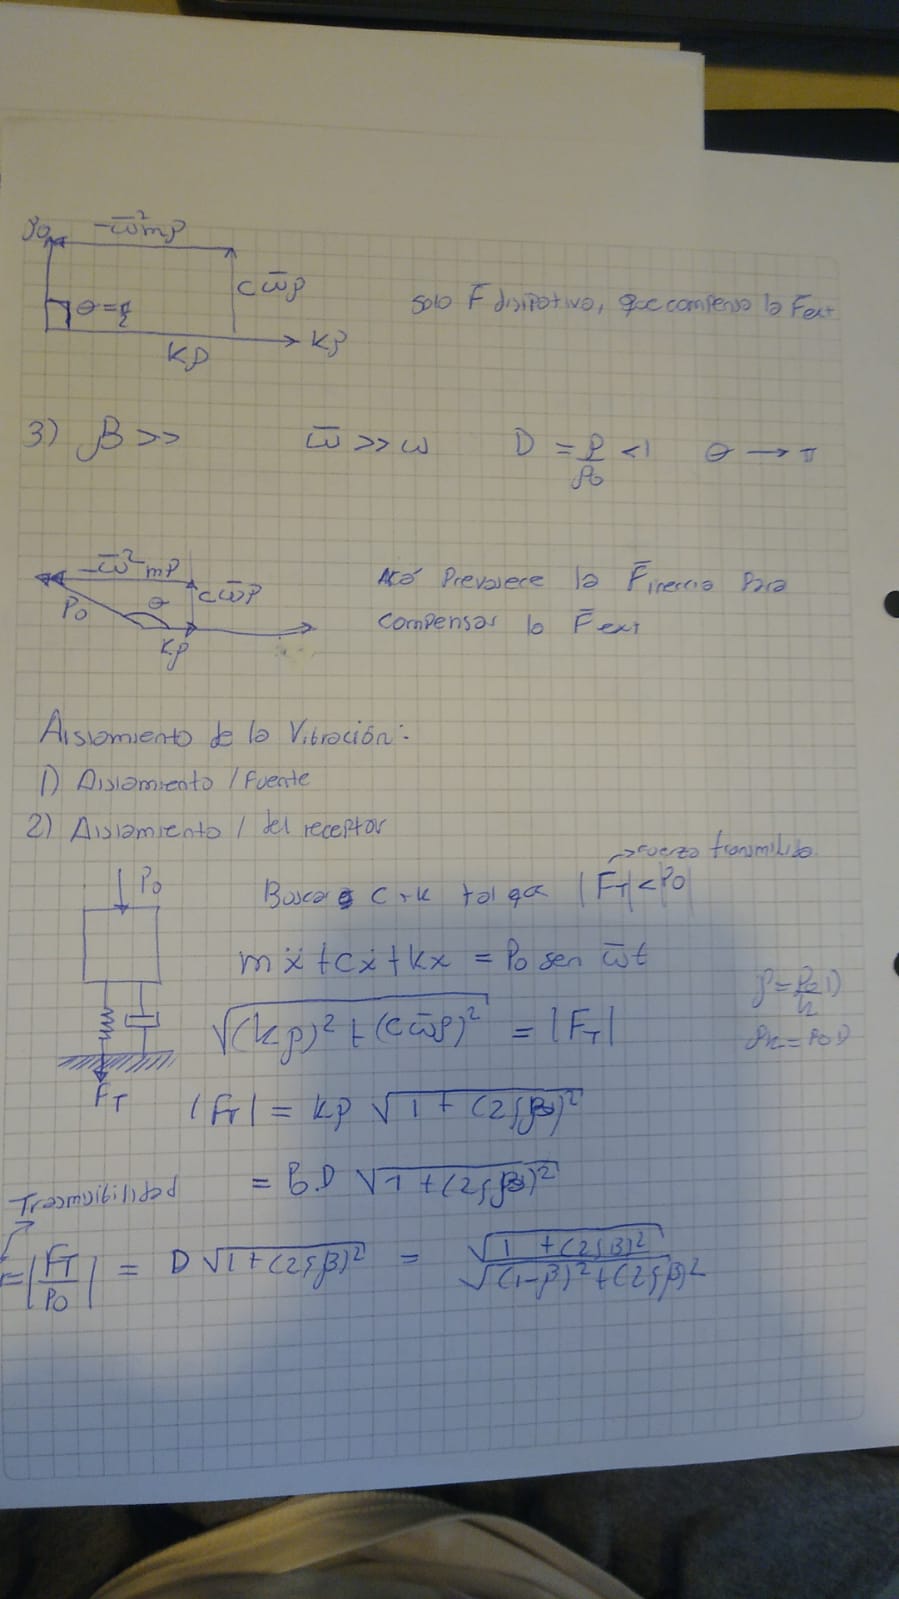 P₀ -ω̄²mρ
cω̄ρ
θ=π/2
kρ kρ
solo F̄ disipativa, que compensa la F̄ext
3) β>> ω̄>>ω D = ρ/ρ₀ <1 θ → π
-ω̄²mρ
P₀ θ cω̄ρ
kρ
Acá Prevalece la F̄inercia Para
compensar la F̄ext
Aislamiento de la Vibración:
1) Aislamiento / Fuente
2) Aislamiento / del receptor
→ Fuerza transmitida
P₀
Buscar C y K tal que |F_T|<P₀|
mẍ+cẋ+kx = P₀ sen ω̄t
√((kρ)²+(cω̄ρ)²) = |F_T|
ρ=P₀/k D
ρk=P₀D
F_T
|F_T| = kρ √(1+(2ξβ)²)
= P₀D √(1+(2ξβ)²)
Trasmisibilidad
=|F_T/P₀| = D√(1+(2ξβ)²) = √(1+(2ξβ)²)/√((1-β)²+(2ξβ)²)